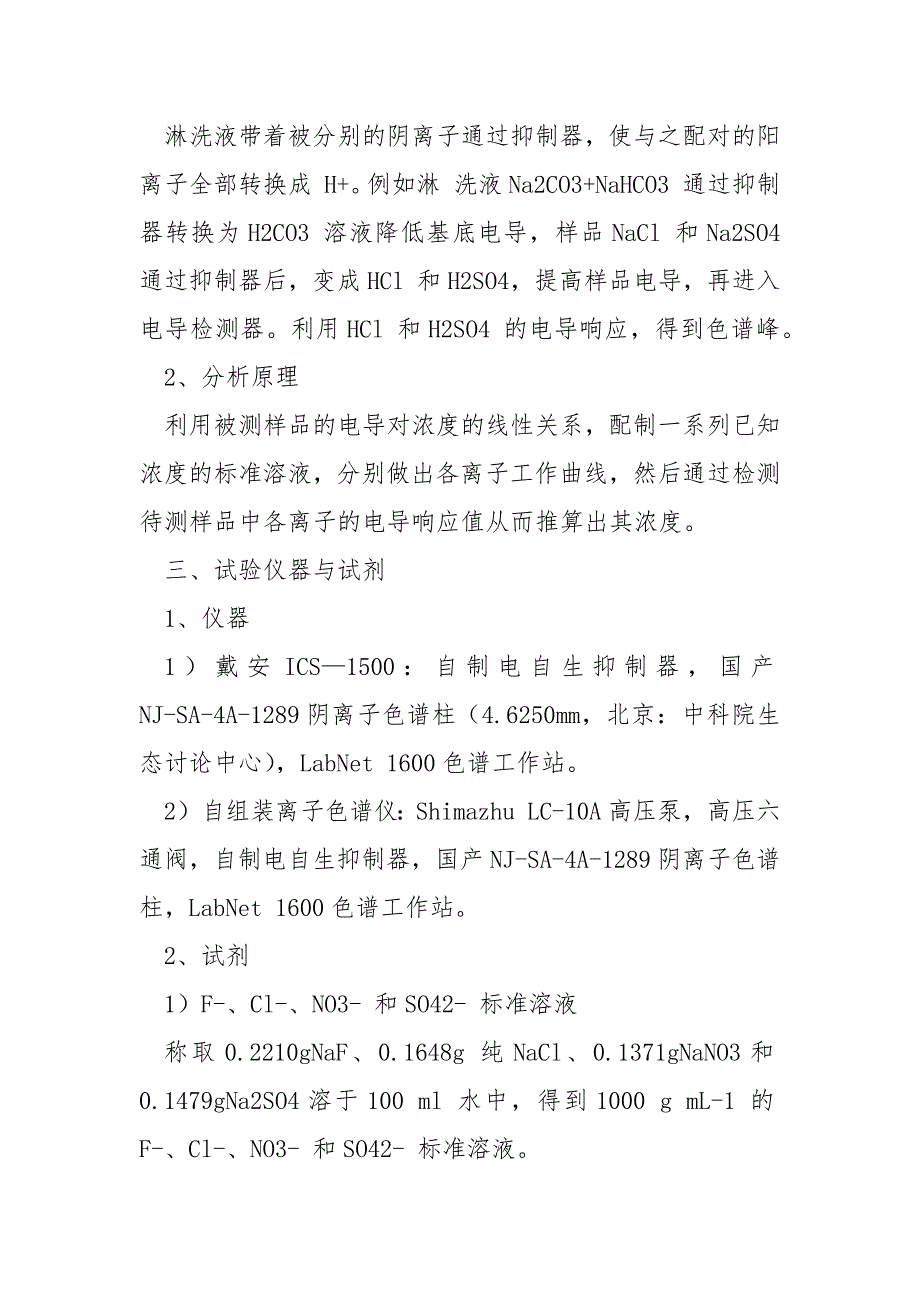 淋洗液带着被分别的阴离子通过抑制器，使与之配对的阳
离子全部转换成 H+。例如淋 洗液Na2CO3+NaHCO3 通过抑制
器转换为H2CO3 溶液降低基底电导，样品NaCl 和Na2SO4
通过抑制器后，变成HCl 和H2SO4，提高样品电导，再进入
电导检测器。利用HCl 和H2SO4 的电导响应，得到色谱峰。
2、分析原理
利用被测样品的电导对浓度的线性关系，配制一系列已知
浓度的标准溶液，分别做出各离子工作曲线，然后通过检测
待测样品中各离子的电导响应值从而推算出其浓度。
三、试验仪器与试剂
1、仪器
1）戴安ICS—1500：自制电自生抑制器，国产
NJ-SA-4A-1289阴离子色谱柱（4.6250mm，北京：中科院生
态讨论中心），LabNet 1600色谱工作站。
2）自组装离子色谱仪：Shimazhu LC-10A高压泵，高压六
通阀，自制电自生抑制器，国产NJ-SA-4A-1289阴离子色谱
柱，LabNet 1600色谱工作站。
2、试剂
1）F-、Cl-、NO3- 和SO42- 标准溶液
称取0.2210gNaF、0.1648g 纯NaCl、0.1371gNaNO3和
0.1479gNa2SO4溶于100 ml 水中，得到1000 g mL-1 的
F-、Cl-、NO3- 和SO42- 标准溶液。